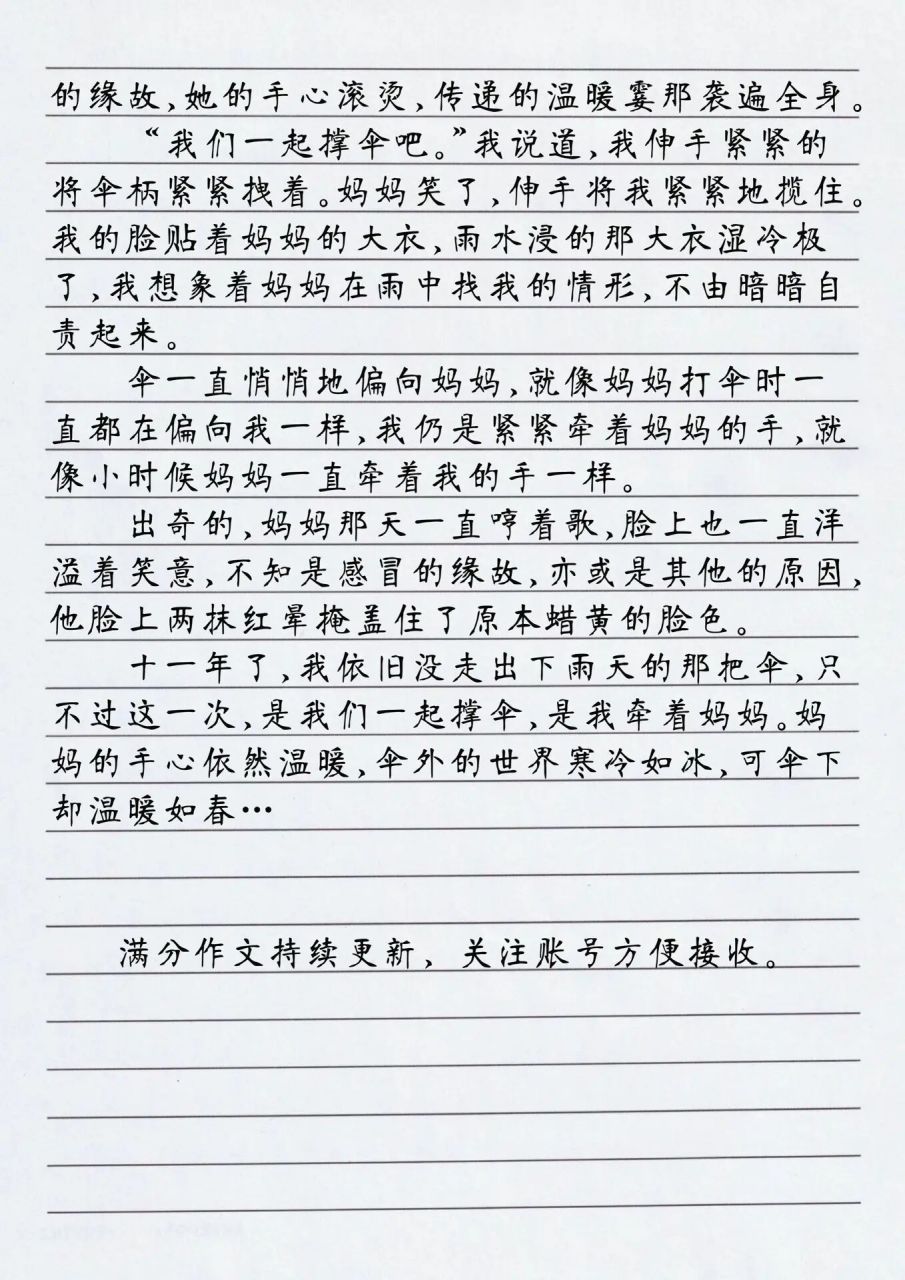 的缘故,她的手心滚烫,传递的温暖霎那袭遍全身。
“我们一起撑伞吧。”我说道,我伸手紧紧的
将伞柄紧紧拽着。妈妈笑了,伸手将我紧紧地揽住。
我的脸贴着妈妈的大衣,雨水浸的那大衣湿冷极
了,我想象着妈妈在雨中找我的情形,不由暗暗自
责起来。
伞一直悄悄地偏向妈妈,就像妈妈打伞时一
直都在偏向我一样,我仍是紧紧牵着妈妈的手,就
像小时候妈妈一直牵着我的手一样。
出奇的,妈妈那天一直哼着歌,脸上也一直洋
溢着笑意,不知是感冒的缘故,亦或是其他的原因,
他脸上两抹红晕掩盖住了原本蜡黄的脸色。
十一年了,我依旧没走出下雨天的那把伞,只
不过这一次,是我们一起撑伞,是我牵着妈妈。妈
妈的手心依然温暖,伞外的世界寒冷如冰,可伞下
却温暖如春…
满分作文持续更新,关注账号方便接收。